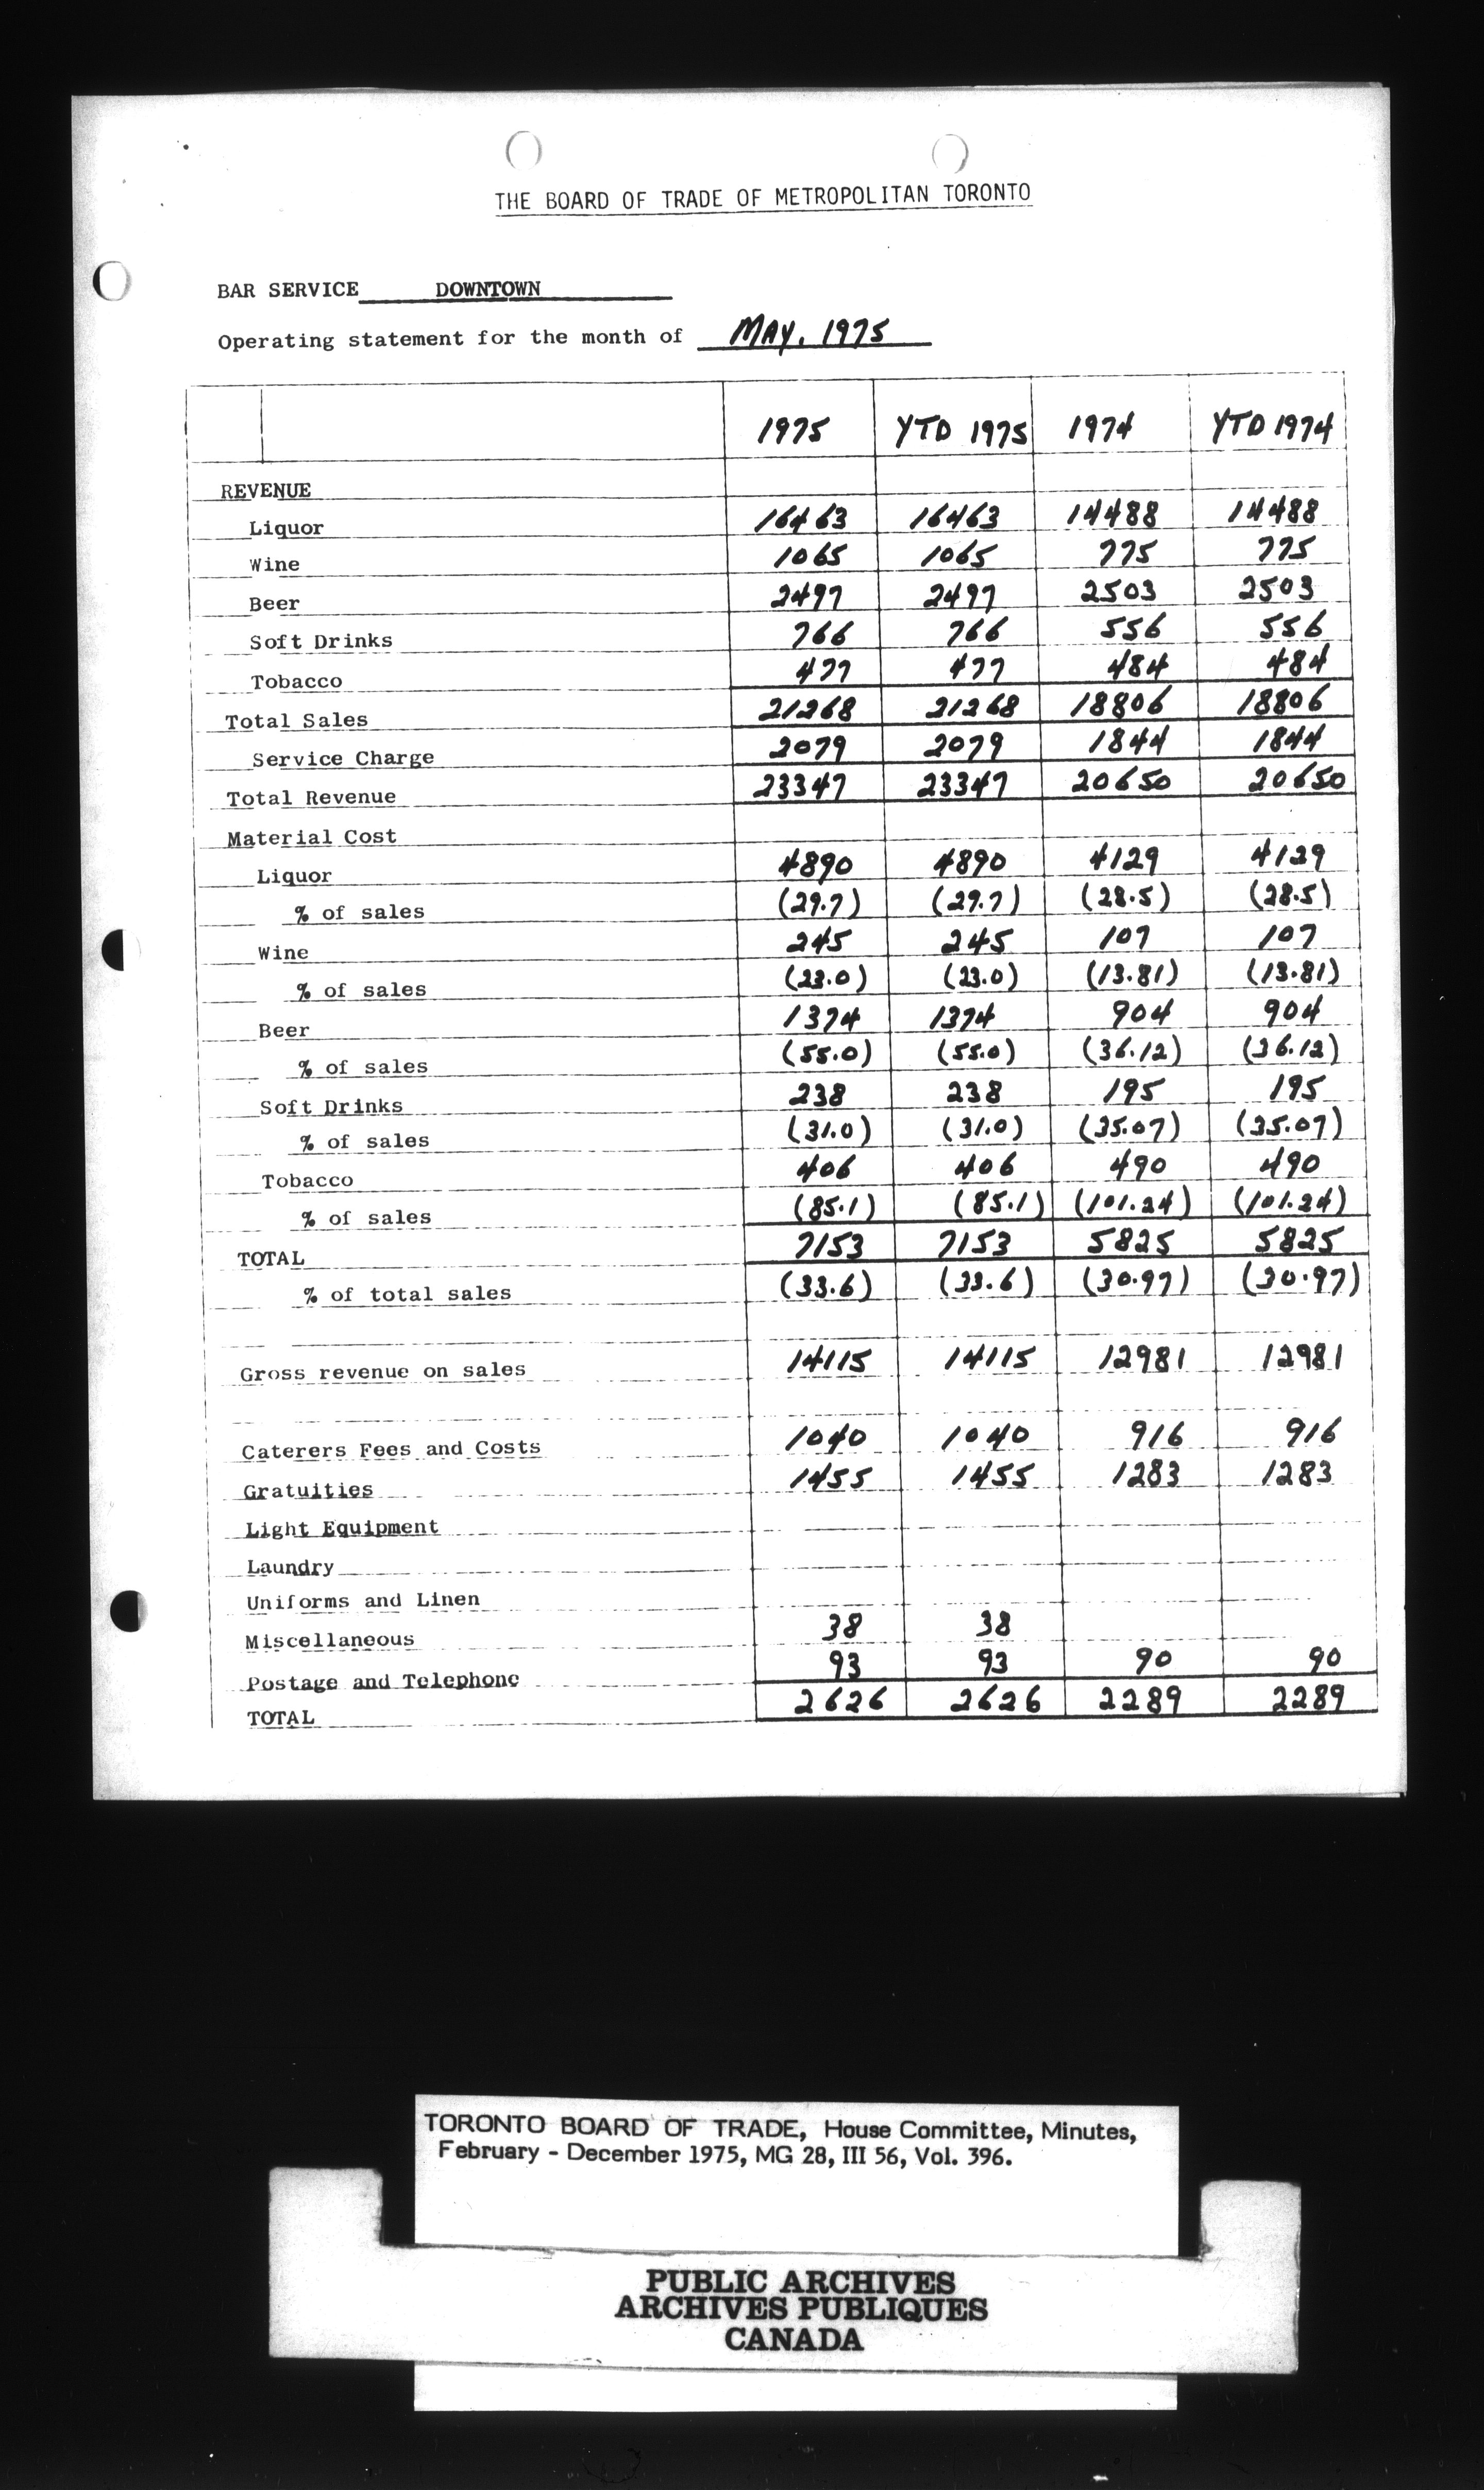 THE BOARD OF TRADE OF METROPOLITAN TORONTO
BAR SERVICE DOWNTOWN
Operating statement for the month of MAY. 1975
1975 YTD 1975 1974 YTD 1974
REVENUE
Liquor 16463 16463 14488 14488
Wine 1065 1065 775 775
Beer 2497 2497 2503 2503
Soft Drinks 766 766 556 556
Tobacco 477 477 484 484
Total Sales 21268 21268 18806 18806
Service Charge 2079 2079 1844 1844
Total Revenue 23347 23347 20650 20650
Material Cost
Liquor 4890 4890 4129 4129
% of sales (29.7) (29.7) (28.5) (28.5)
Wine 245 245 107 107
% of sales (23.0) (23.0) (13.81) (13.81)
Beer 1374 1374 904 904
% of sales (55.0) (55.0) (36.12) (36.12)
Soft Drinks 238 238 195 195
% of sales (31.0) (31.0) (35.07) (35.07)
Tobacco 406 406 490 490
% of sales (85.1) (85.1) (101.24) (101.24)
TOTAL 7153 7153 5825 5825
% of total sales (33.6) (33.6) (30.97) (30.97)
Gross revenue on sales 14115 14115 12981 12981
Caterers Fees and Costs 1040 1040 916 916
Gratuities 1455 1455 1283 1283
Light Equipment
Laundry
Uniforms and Linen
Miscellaneous 38 38
Postage and Telephone 93 93 90 90
TOTAL 2626 2626 2289 2289
TORONTO BOARD OF TRADE, House Committee, Minutes,
February - December 1975, MG 28, III 56, Vol. 396.
PUBLIC ARCHIVES
ARCHIVES PUBLIQUES
CANADA